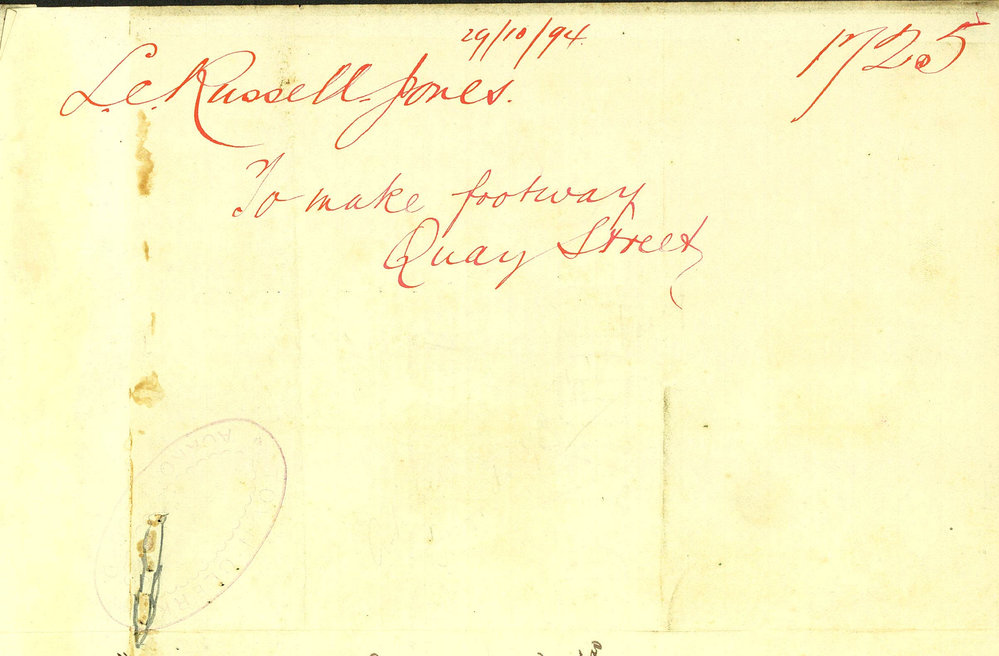 29/10/94
1725
L.C. Russell-Jones.
To make footway
Quay Street